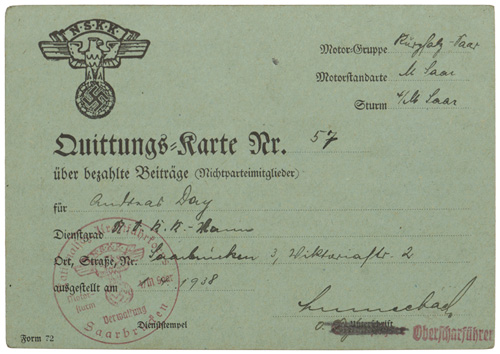 N·S·K·K·
Motor-Gruppe Kurpfalz-Saar
Motorstandarte M Saar
Sturm 4/M Saar
Quittungs-Karte Nr. 57
über bezahlte Beiträge (Nichtparteimitglieder)
für Andreas Day
Dienstgrad N.S.K.K.-Mann
Ort, Straße, Nr. Saarbrücken 3, Viktoriastr. 2
ausgestellt am 1938
Verwaltung
Saarbrücken
Dienststempel
Oberscharführer
Form 72